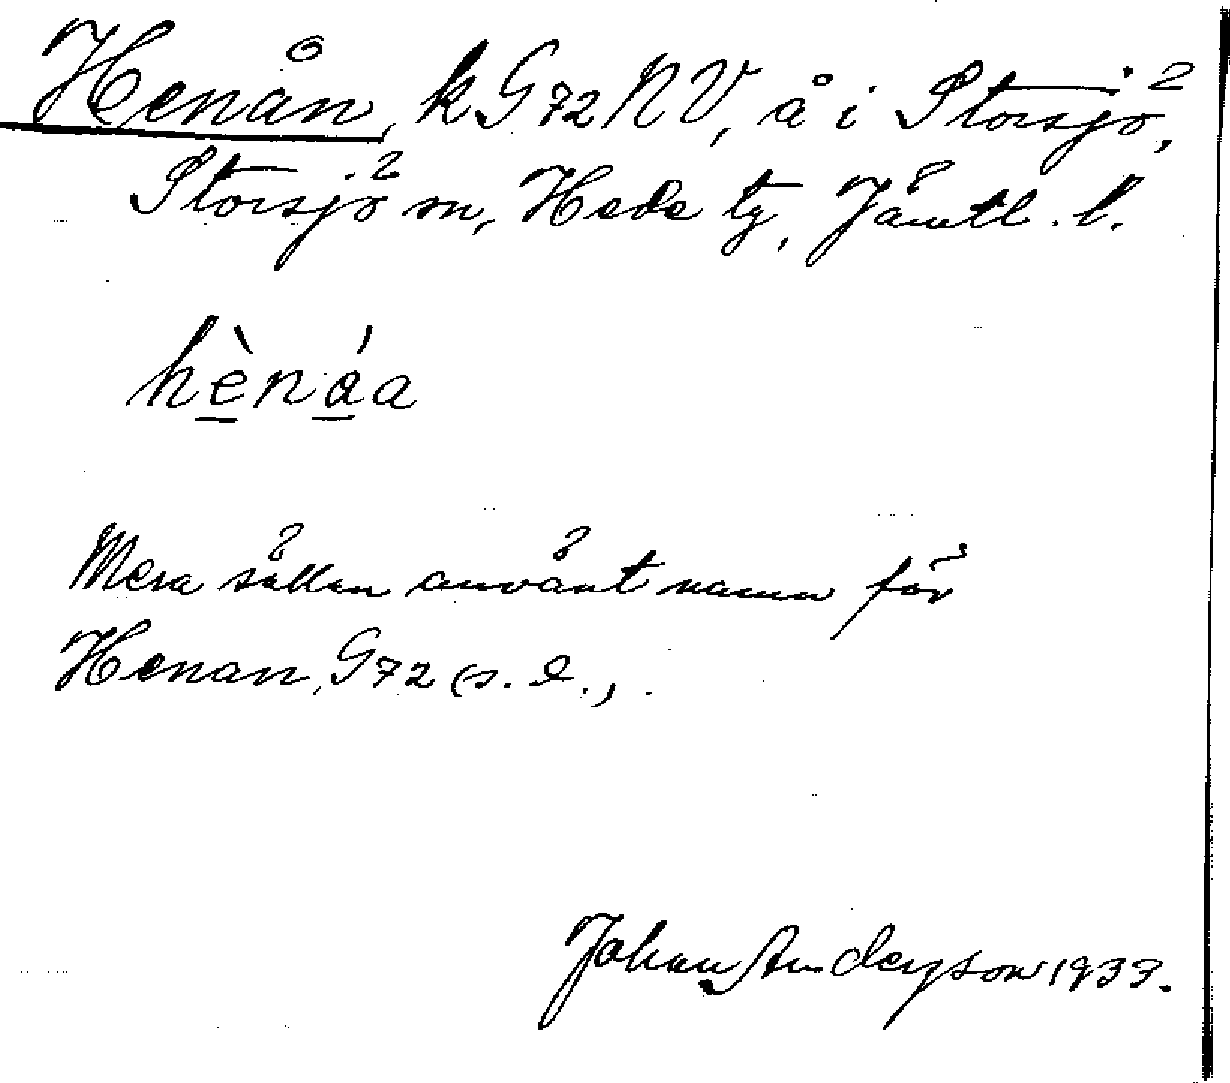 Henån, k G72 NV, å i Storsjö,
Storsjö sn, Hede tg, Jämtl. l.
hènáa
Mera sällan använt namn för
Henan, G72 (s. d.)
Johan Anderzson 1933.